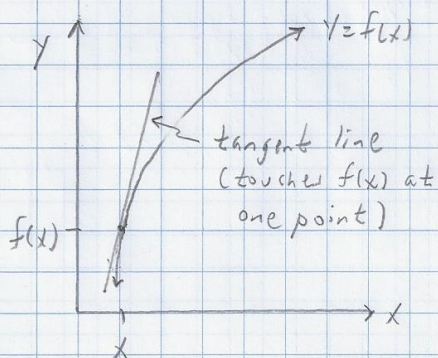 y
y=f(x)
tangent line
(touches f(x) at
one point)
f(x)
x
x